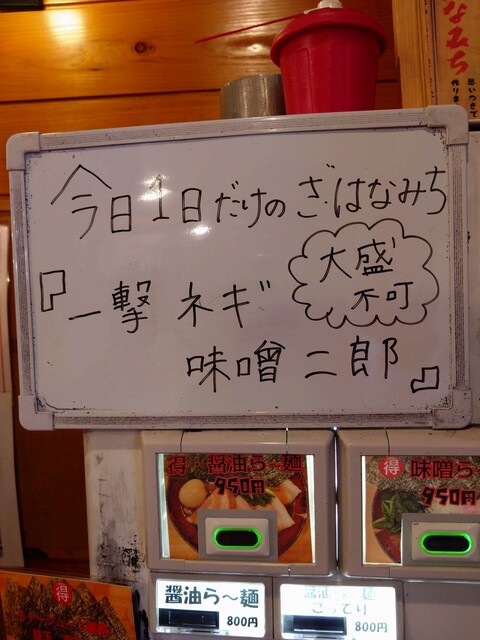 なみち
思いつきで
作りま
今日1日だけのざ・はなみち
『一撃 ネギ
大盛
不可
味噌二郎』
得・醤油ら〜麺
950円
得 味噌ら
950円
醤油ら〜麺
800円
醤油ら〜麺
こってり
800円
得